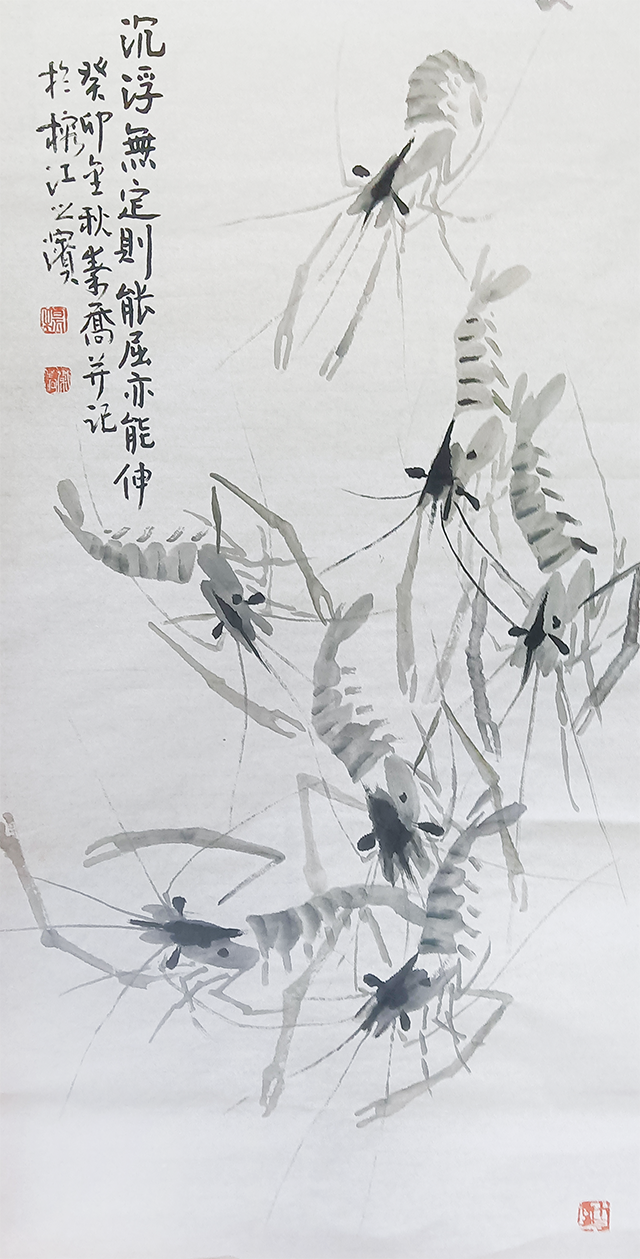 沉浮無定則能屈亦能伸
癸卯金秋素喬并記
於榕江之濱